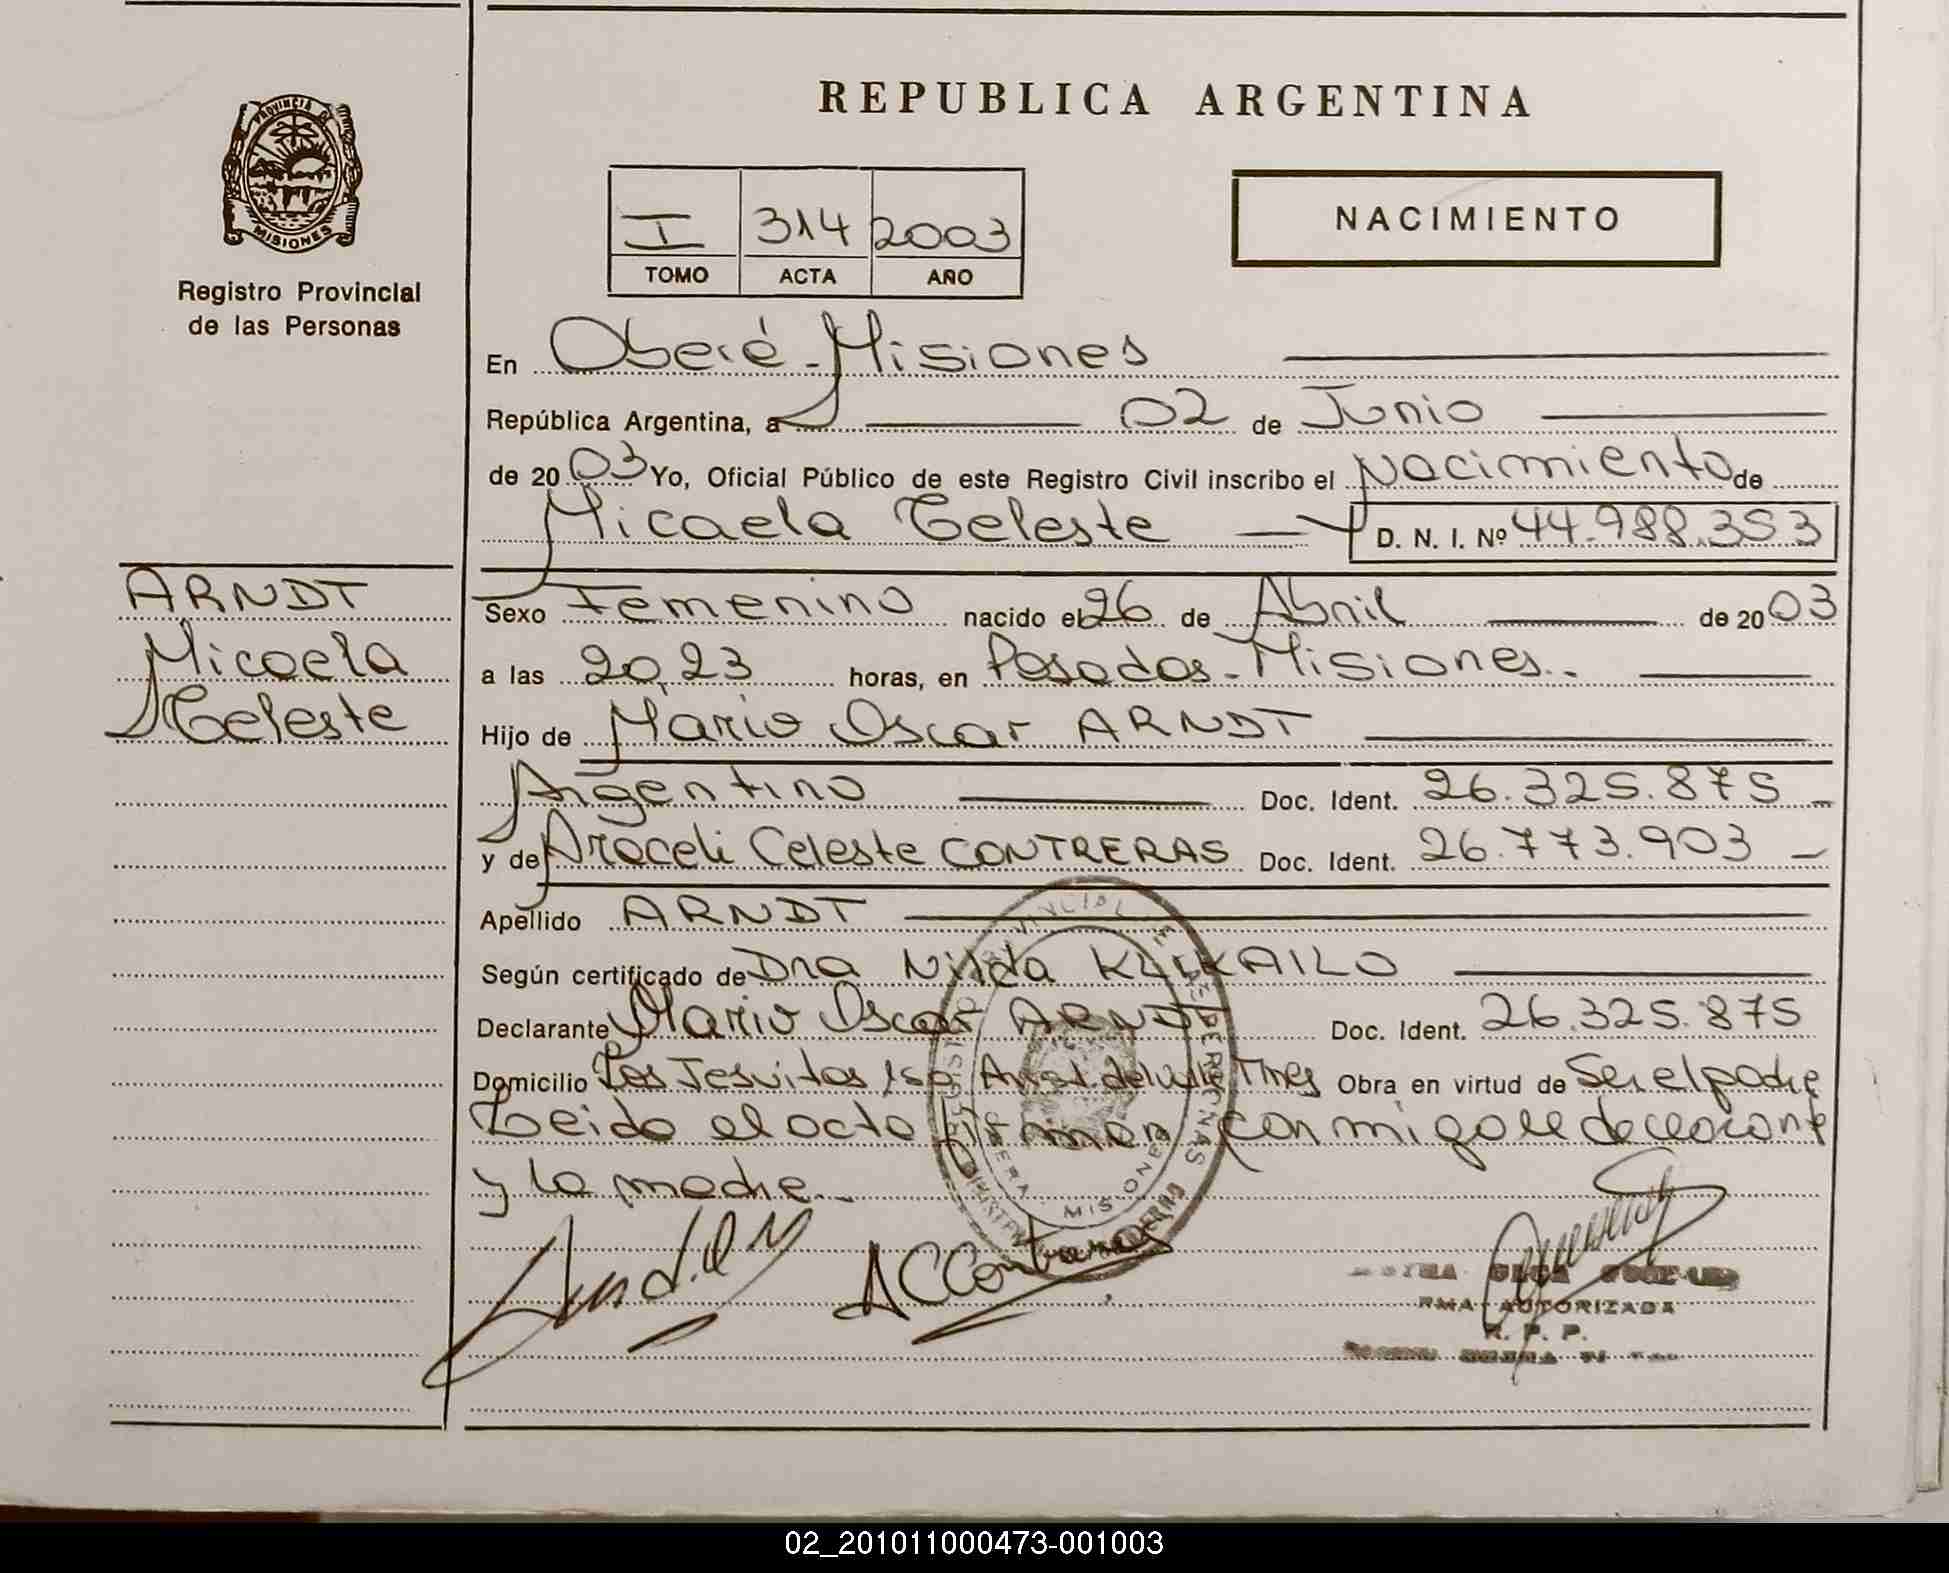 REPUBLICA ARGENTINA
PROVINCIA DE
MISIONES
Registro Provincial
de las Personas
I 314 2003
TOMO ACTA AÑO
NACIMIENTO
En Oberá - Misiones
República Argentina, a 02 de Junio
de 2003 Yo, Oficial Público de este Registro Civil inscribo el Nacimiento de
Micaela Celeste D. N. I. Nº 44.988.353
ARNDT
Micaela
Celeste
Sexo Femenino nacido el 26 de Abril de 2003
a las 20,23 horas, en Posadas - Misiones.
Hijo de Mario Oscar ARNDT
Argentino Doc. Ident. 26.325.875
y de Araceli Celeste CONTRERAS Doc. Ident. 26.773.903
Apellido ARNDT
Según certificado de Dra Nilda
Declarante Mario Oscar ARNDT Doc. Ident. 26.325.875
Domicilio Los Jesuitas Obra en virtud de Ser el padre
Leido el acta firman conmigo el declarante
y la madre.
ACContreras
OLGA
RMA AUTORIZADA
R. P. P.
02_201011000473-001003